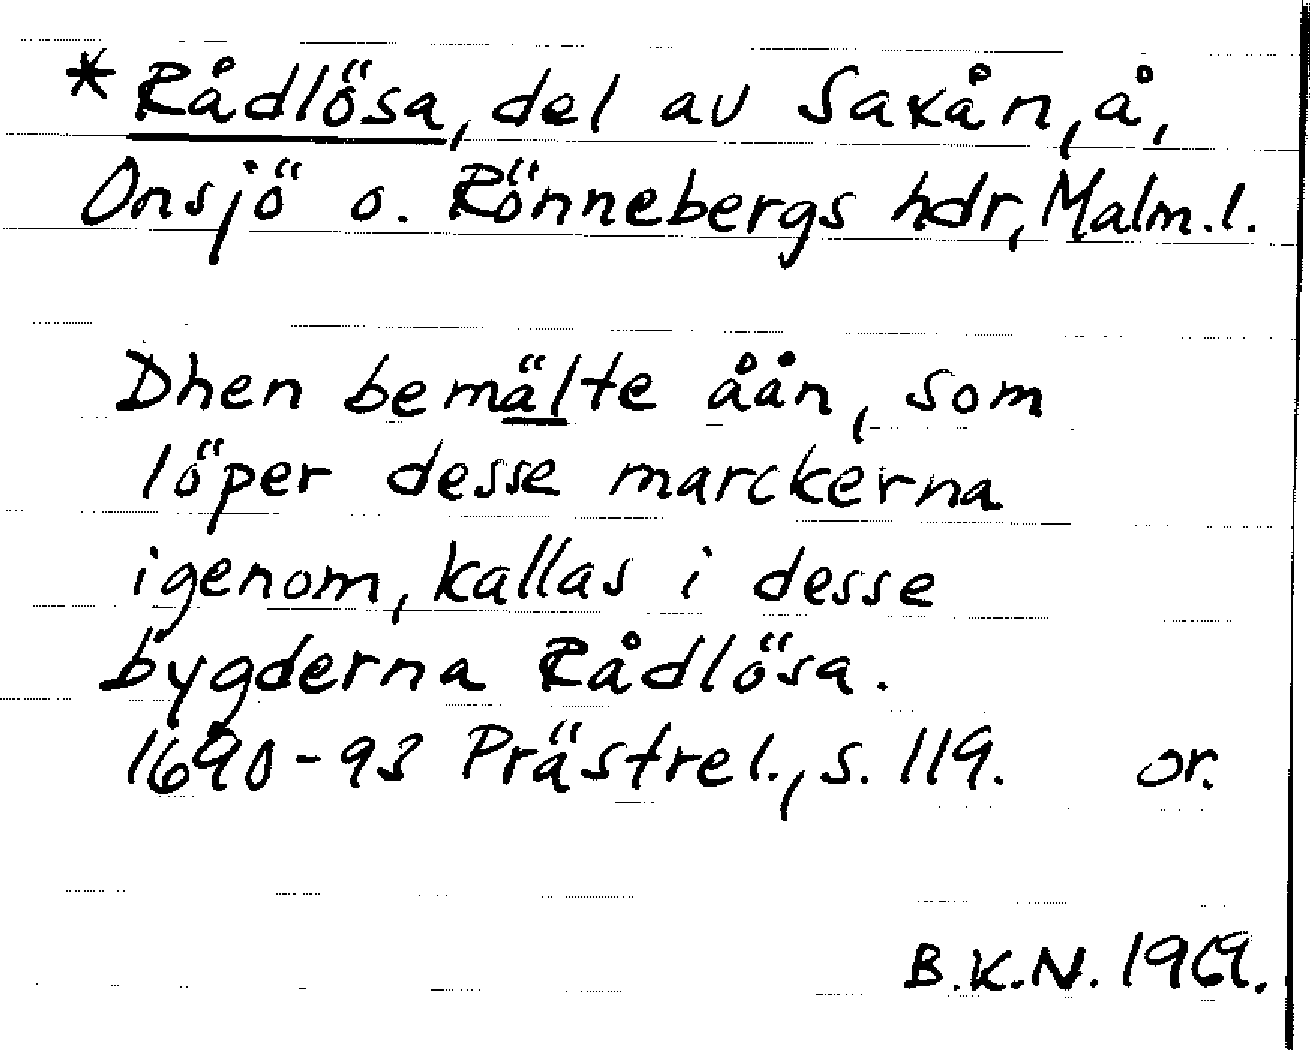 * Rådlösa, del av Saxån, å,
Onsjö o. Rönnebergs hdr, Malm.l.
Dhen bemälte åån, som
löper desse marckerna
igenom, kallas i desse
bygderna Rådlösa.
1690-93 Prästrel., s. 119. or.
B.K.N. 1969.